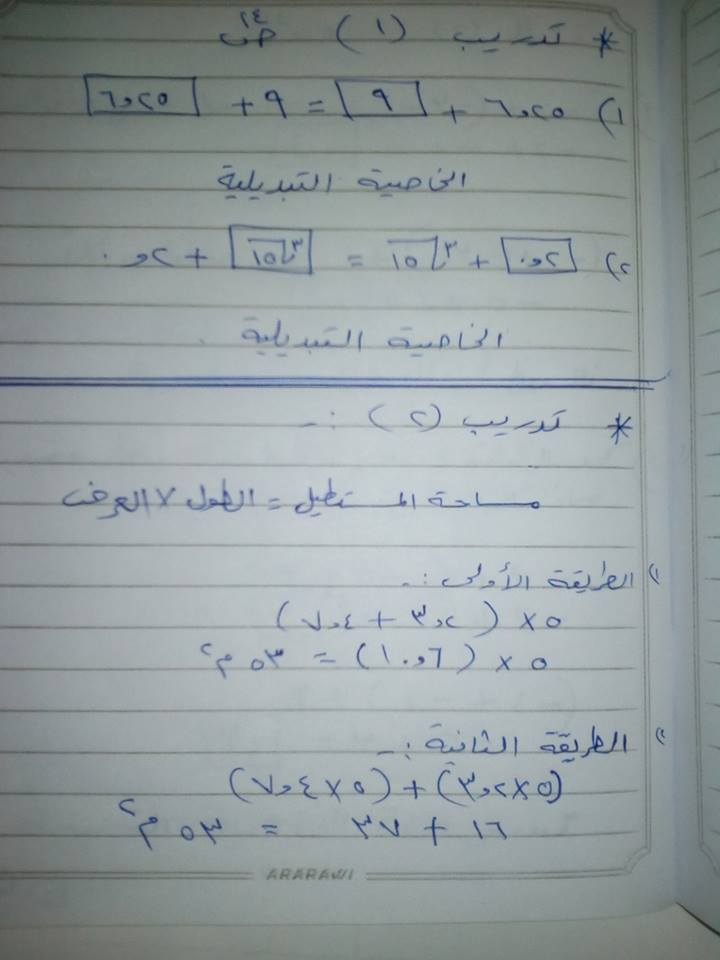 * تدريب (١) ص ٢٤
١) ٦,٢٥ + ٩ = ٩ + ٦,٢٥
الخاصية التبديلية
٢) ٠,٢ + ∛١٥ = ∛١٥ + ٠,٢
الخاصية التبديلية .
* تدريب (٢) :-
مساحة المستطيل = الطول × العرض
١) الطريقة الأولى :-
٥ × (٣,٢ + ٧,٤)
٥ × (١٠,٦) = ٥٣ م٢
٢) الطريقة الثانية :-
(٥×٣,٢) + (٥×٧,٤)
١٦ + ٣٧ = ٥٣ م٢
ARARAWI